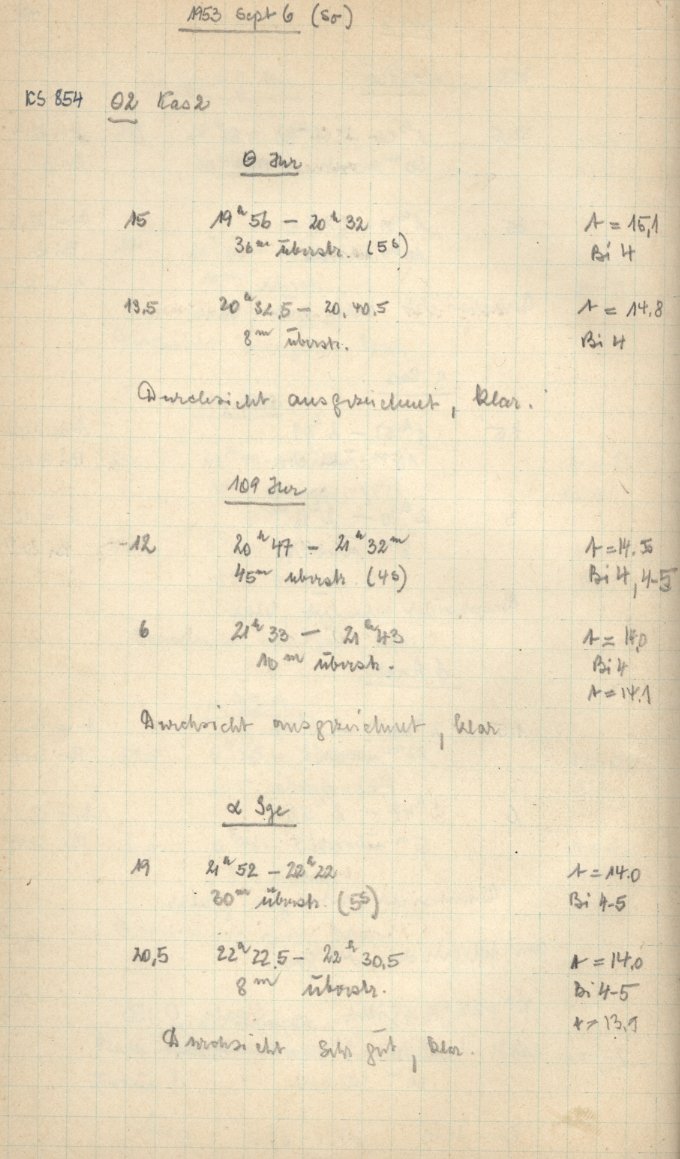 1953 Sept 6 (So)
KS 854 O2 Kas2
θ Her
15 19ʰ56 – 20ʰ32 t = 15,1
36ᵐ überstr. (5ˢ) Bi 4
19,5 20ʰ32,5 – 20,40,5 t = 14,8
8ᵐ überstr. Bi 4
Durchsicht ausgezeichnet, klar.
109 Her
12 20ʰ47 – 21ʰ32ᵐ t = 14.5
45ᵐ überstr. (4ˢ) Bi 4, 4-5
6 21ʰ33 – 21ʰ43 t =
10ᵐ überstr. Bi 4
t = 14,1
Durchsicht ausgezeichnet, klar
α Sge
19 21ʰ52 – 22ʰ22 t = 14.0
30ᵐ überstr. (5ˢ) Bi 4-5
20,5 22ʰ22,5 – 22ʰ30,5 t = 14,0
8ᵐ überstr. Bi 4-5
t = 13,9
Durchsicht sehr gut, klar.